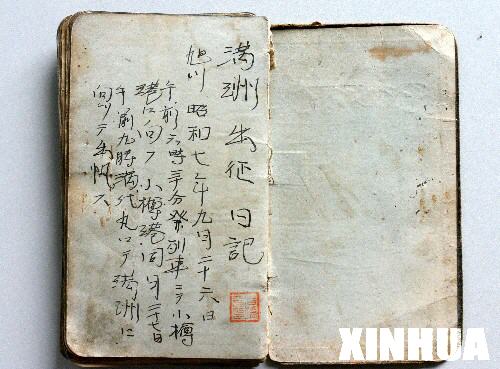 満洲出征日記
旭川 昭和七年九月二十六日
午前六時三十分発列車ニテ小樽
港ニ向フ 小樽港同月二十七日
午前九時満代丸ニテ満洲ニ
向ケ出帆ス
XINHUA